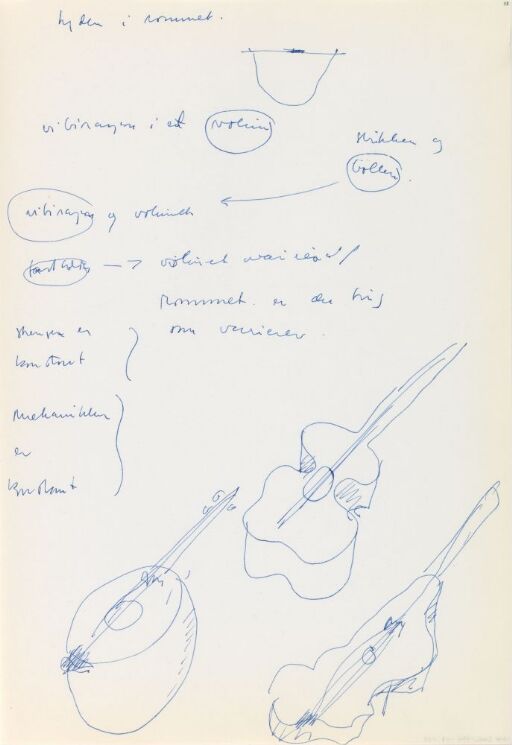 lyden i rommet.
vibirasjon i et volum
stikken og
bollen.
vibirasjon og volumet
volumet varierer/
rommet. er den ting
som varierer.
strengen er
konstant
mekanikken
er
konstant